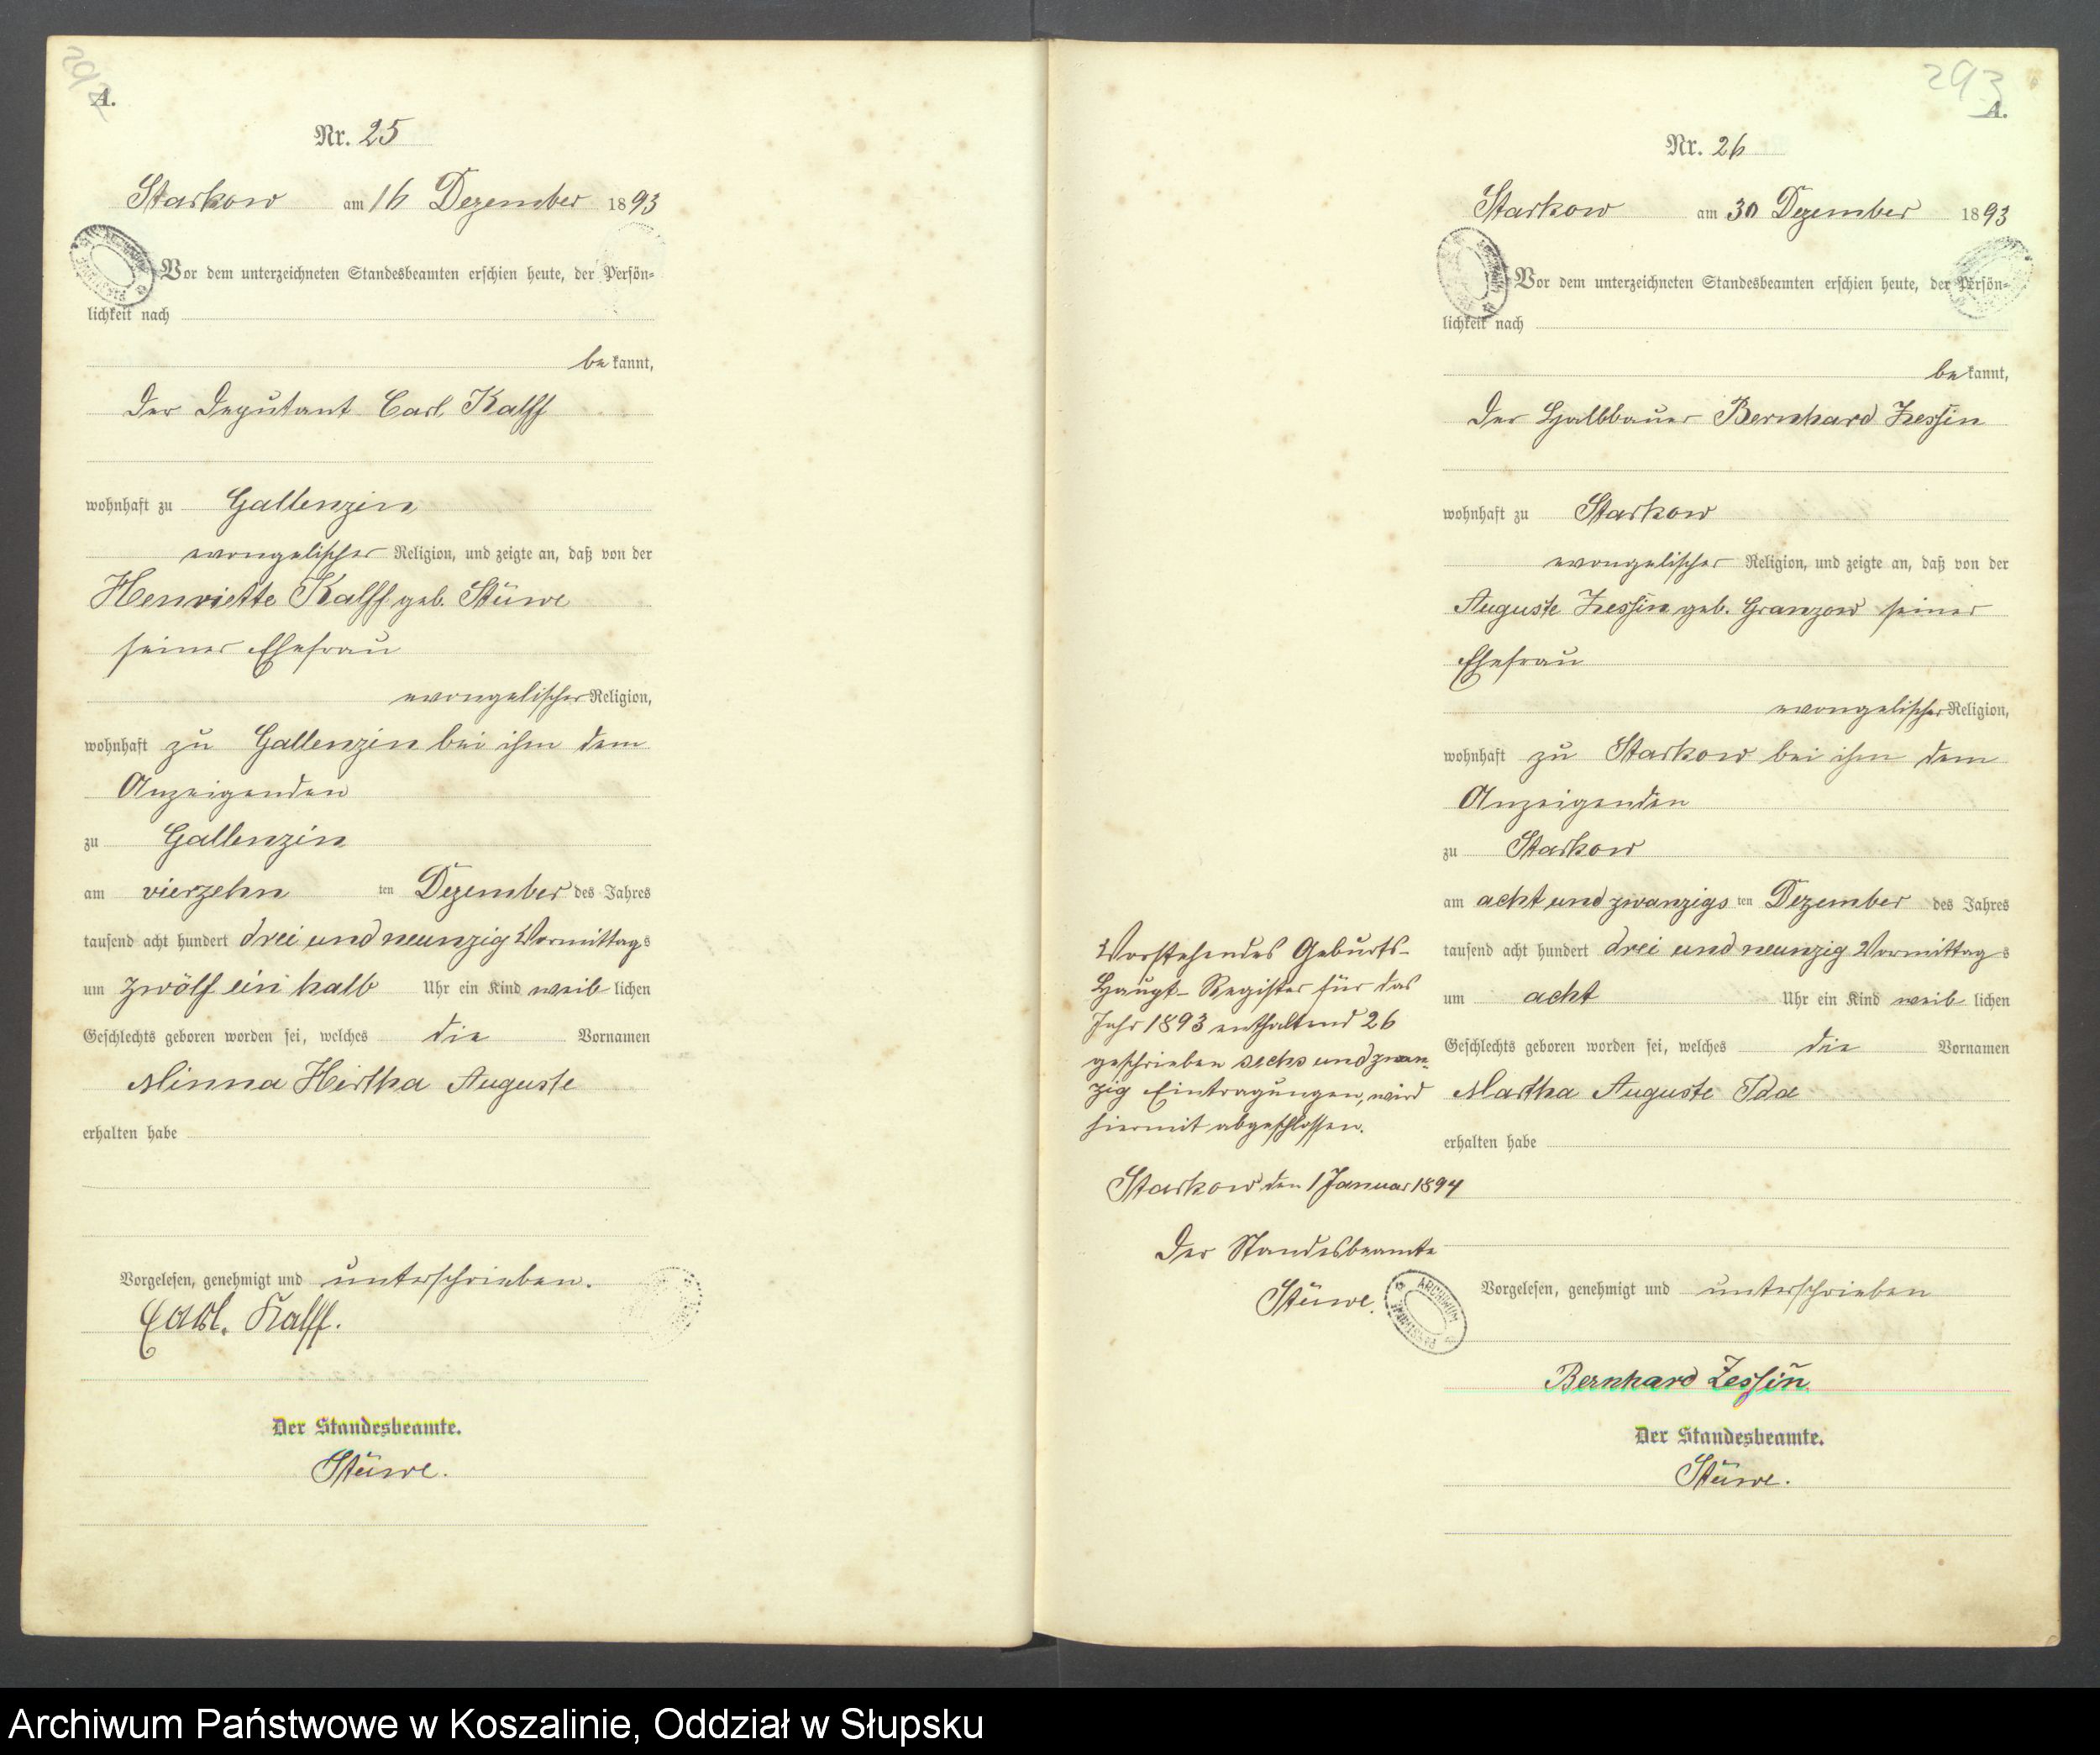 292
A.
Nr. 25
Starkow am 16 Dezember 1893
Vor dem unterzeichneten Standesbeamten erschien heute, der Persön-
lichkeit nach
bekannt,
der Deputant Carl Kalff
wohnhaft zu Gallenzin
evangelischer Religion, und zeigte an, daß von der
Henriette Kalff geb. Stüwe
seiner Ehefrau
evangelischer Religion,
wohnhaft zu Gallenzin bei ihm dem
Anzeigenden
zu Gallenzin
am vierzehn ten Dezember des Jahres
tausend acht hundert drei und neunzig Vormittags
um zwölf ein halb Uhr ein Kind weiblichen
Geschlechts geboren worden sei, welches die Vornamen
Minna Hertha Auguste
erhalten habe
Vorgelesen, genehmigt und unterschrieben.
Carl. Kalff.
Der Standesbeamte.
Stüwe.
293
A.
Nr. 26
Starkow am 30 Dezember 1893
Vor dem unterzeichneten Standesbeamten erschien heute, der Persön-
lichkeit nach
bekannt,
der Halbbauer Bernhard Zessin
wohnhaft zu Starkow
evangelischer Religion, und zeigte an, daß von der
Auguste Zessin geb. Granzow seiner
Ehefrau
evangelischer Religion,
wohnhaft zu Starkow bei ihm dem
Anzeigenden
zu Starkow
am acht und zwanzigsten Dezember des Jahres
tausend acht hundert drei und neunzig Vormittags
um acht Uhr ein Kind weiblichen
Geschlechts geboren worden sei, welches die Vornamen
Martha Auguste Ida
erhalten habe
Vorgelesen, genehmigt und unterschrieben
Bernhard Zessin
Der Standesbeamte.
Stüwe.
Vorstehendes Geburts-
Haupt-Register für das
Jahr 1893 enthaltend 26
geschrieben sechs und zwan-
zig Eintragungen, wird
hiermit abgeschlossen.
Starkow den 1 Januar 1894
Der Standesbeamte
Stüwe.
ARCHIWUM
Archiwum Państwowe w Koszalinie, Oddział w Słupsku